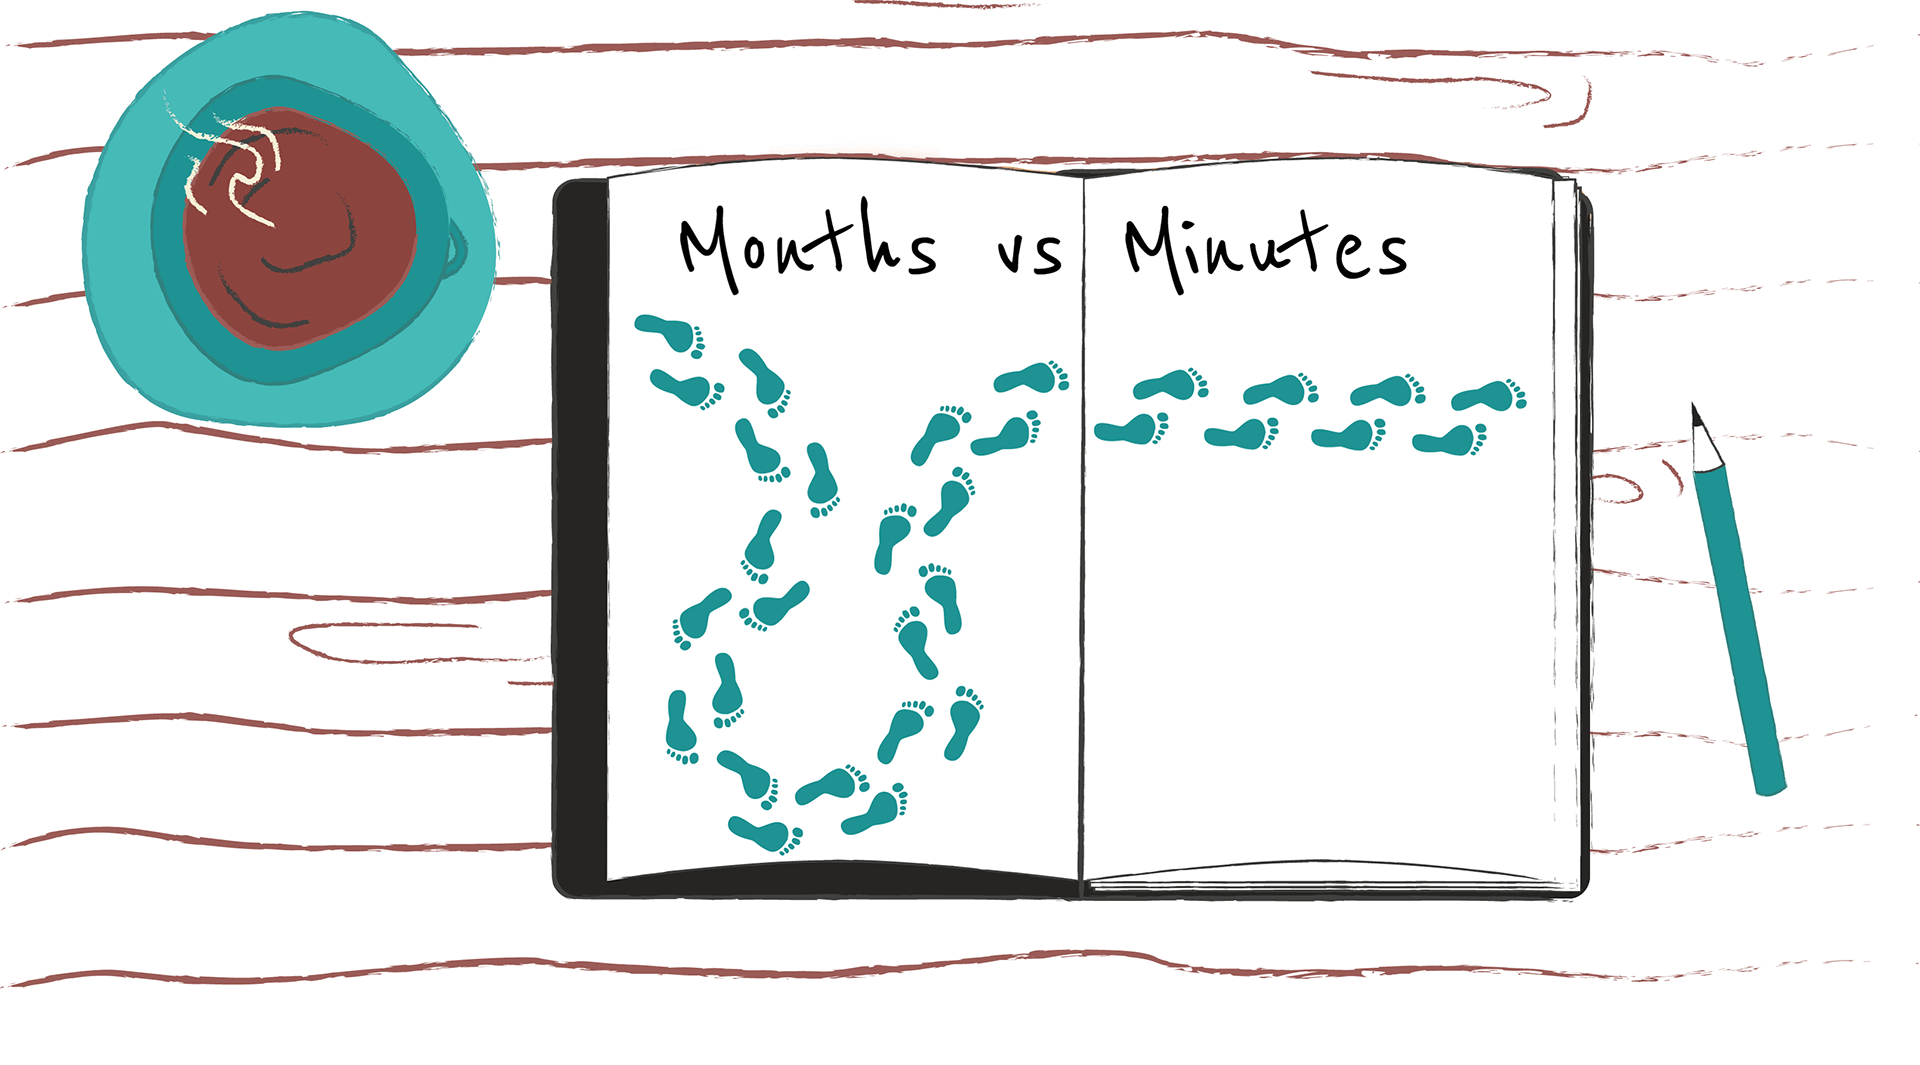 Months vs Minutes